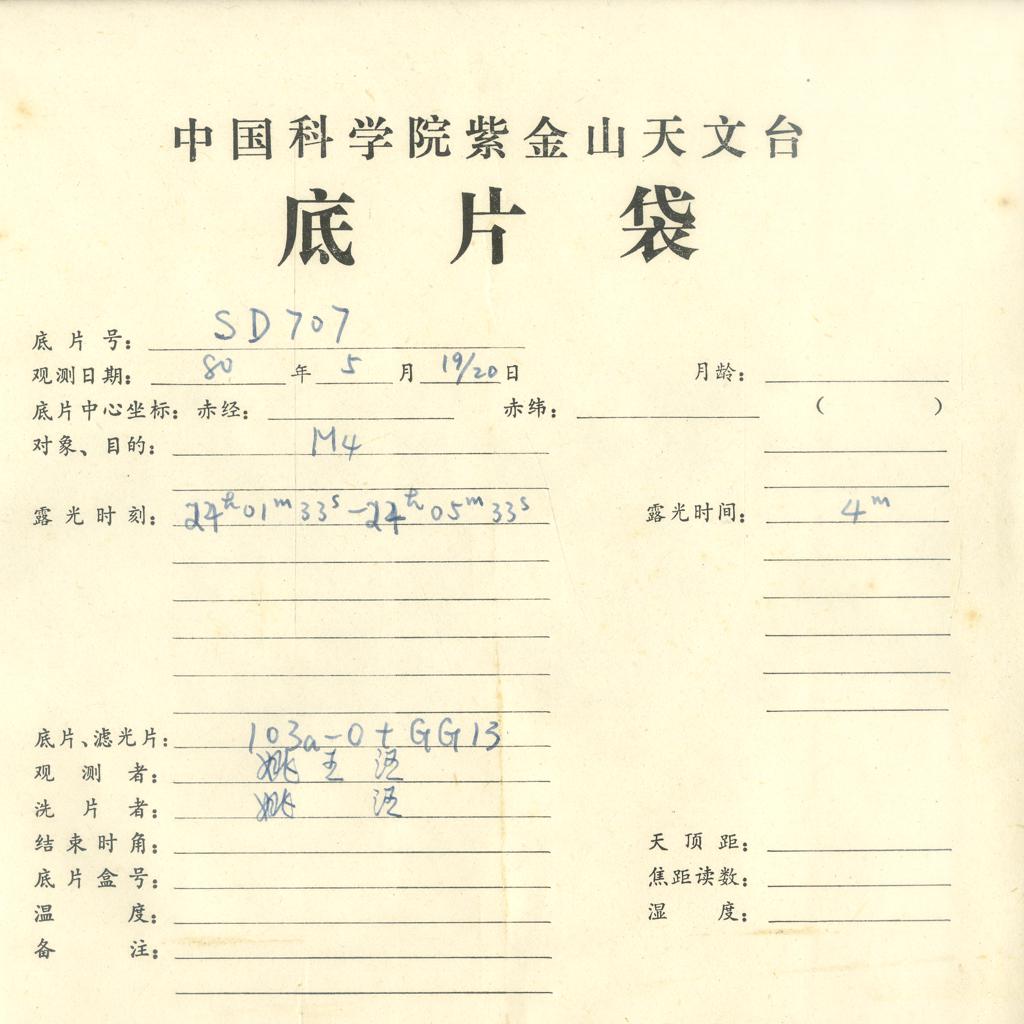 中国科学院紫金山天文台
底片袋
底片号： SD707
观测日期： 80 年 5 月 19/20 日 月龄：
底片中心坐标：赤经： 赤纬： （ ）
对象、目的： M4
露光时刻： 24h01m33s-24h05m33s 露光时间： 4m
底片、滤光片： 103a-O+GG13
观测者： 姚 王 汪
洗片者： 姚 汪
结束时角： 天顶距：
底片盒号： 焦距读数：
温度： 湿度：
备注：